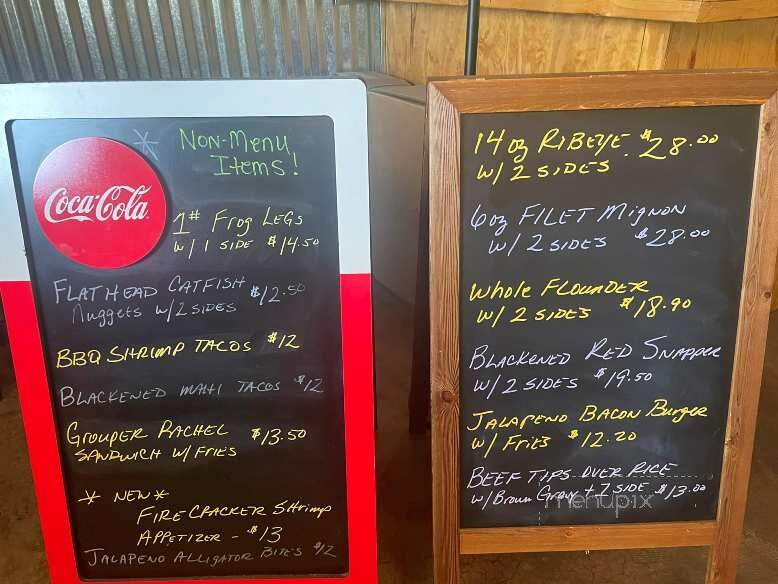 Coca-Cola
* Non-Menu
Items!
1# Frog Legs
w/ 1 side $14.50
Flathead Catfish
Nuggets w/2 sides $12.50
BBQ Shrimp Tacos $12
Blackened Mahi Tacos $12
Grouper Rachel $13.50
Sandwich w/ Fries
* New *
Firecracker Shrimp
Appetizer - $13
Jalapeno Alligator Bites $12
14 oz Ribeye $28.00
w/ 2 sides
6 oz Filet Mignon
w/ 2 sides $28.00
Whole Flounder
w/ 2 sides $18.90
Blackened Red Snapper
w/ 2 sides $19.50
Jalapeno Bacon Burger
w/ Fries $12.20
Beef Tips over Rice
w/ Brown Gravy + 1 side $13.00
menupix